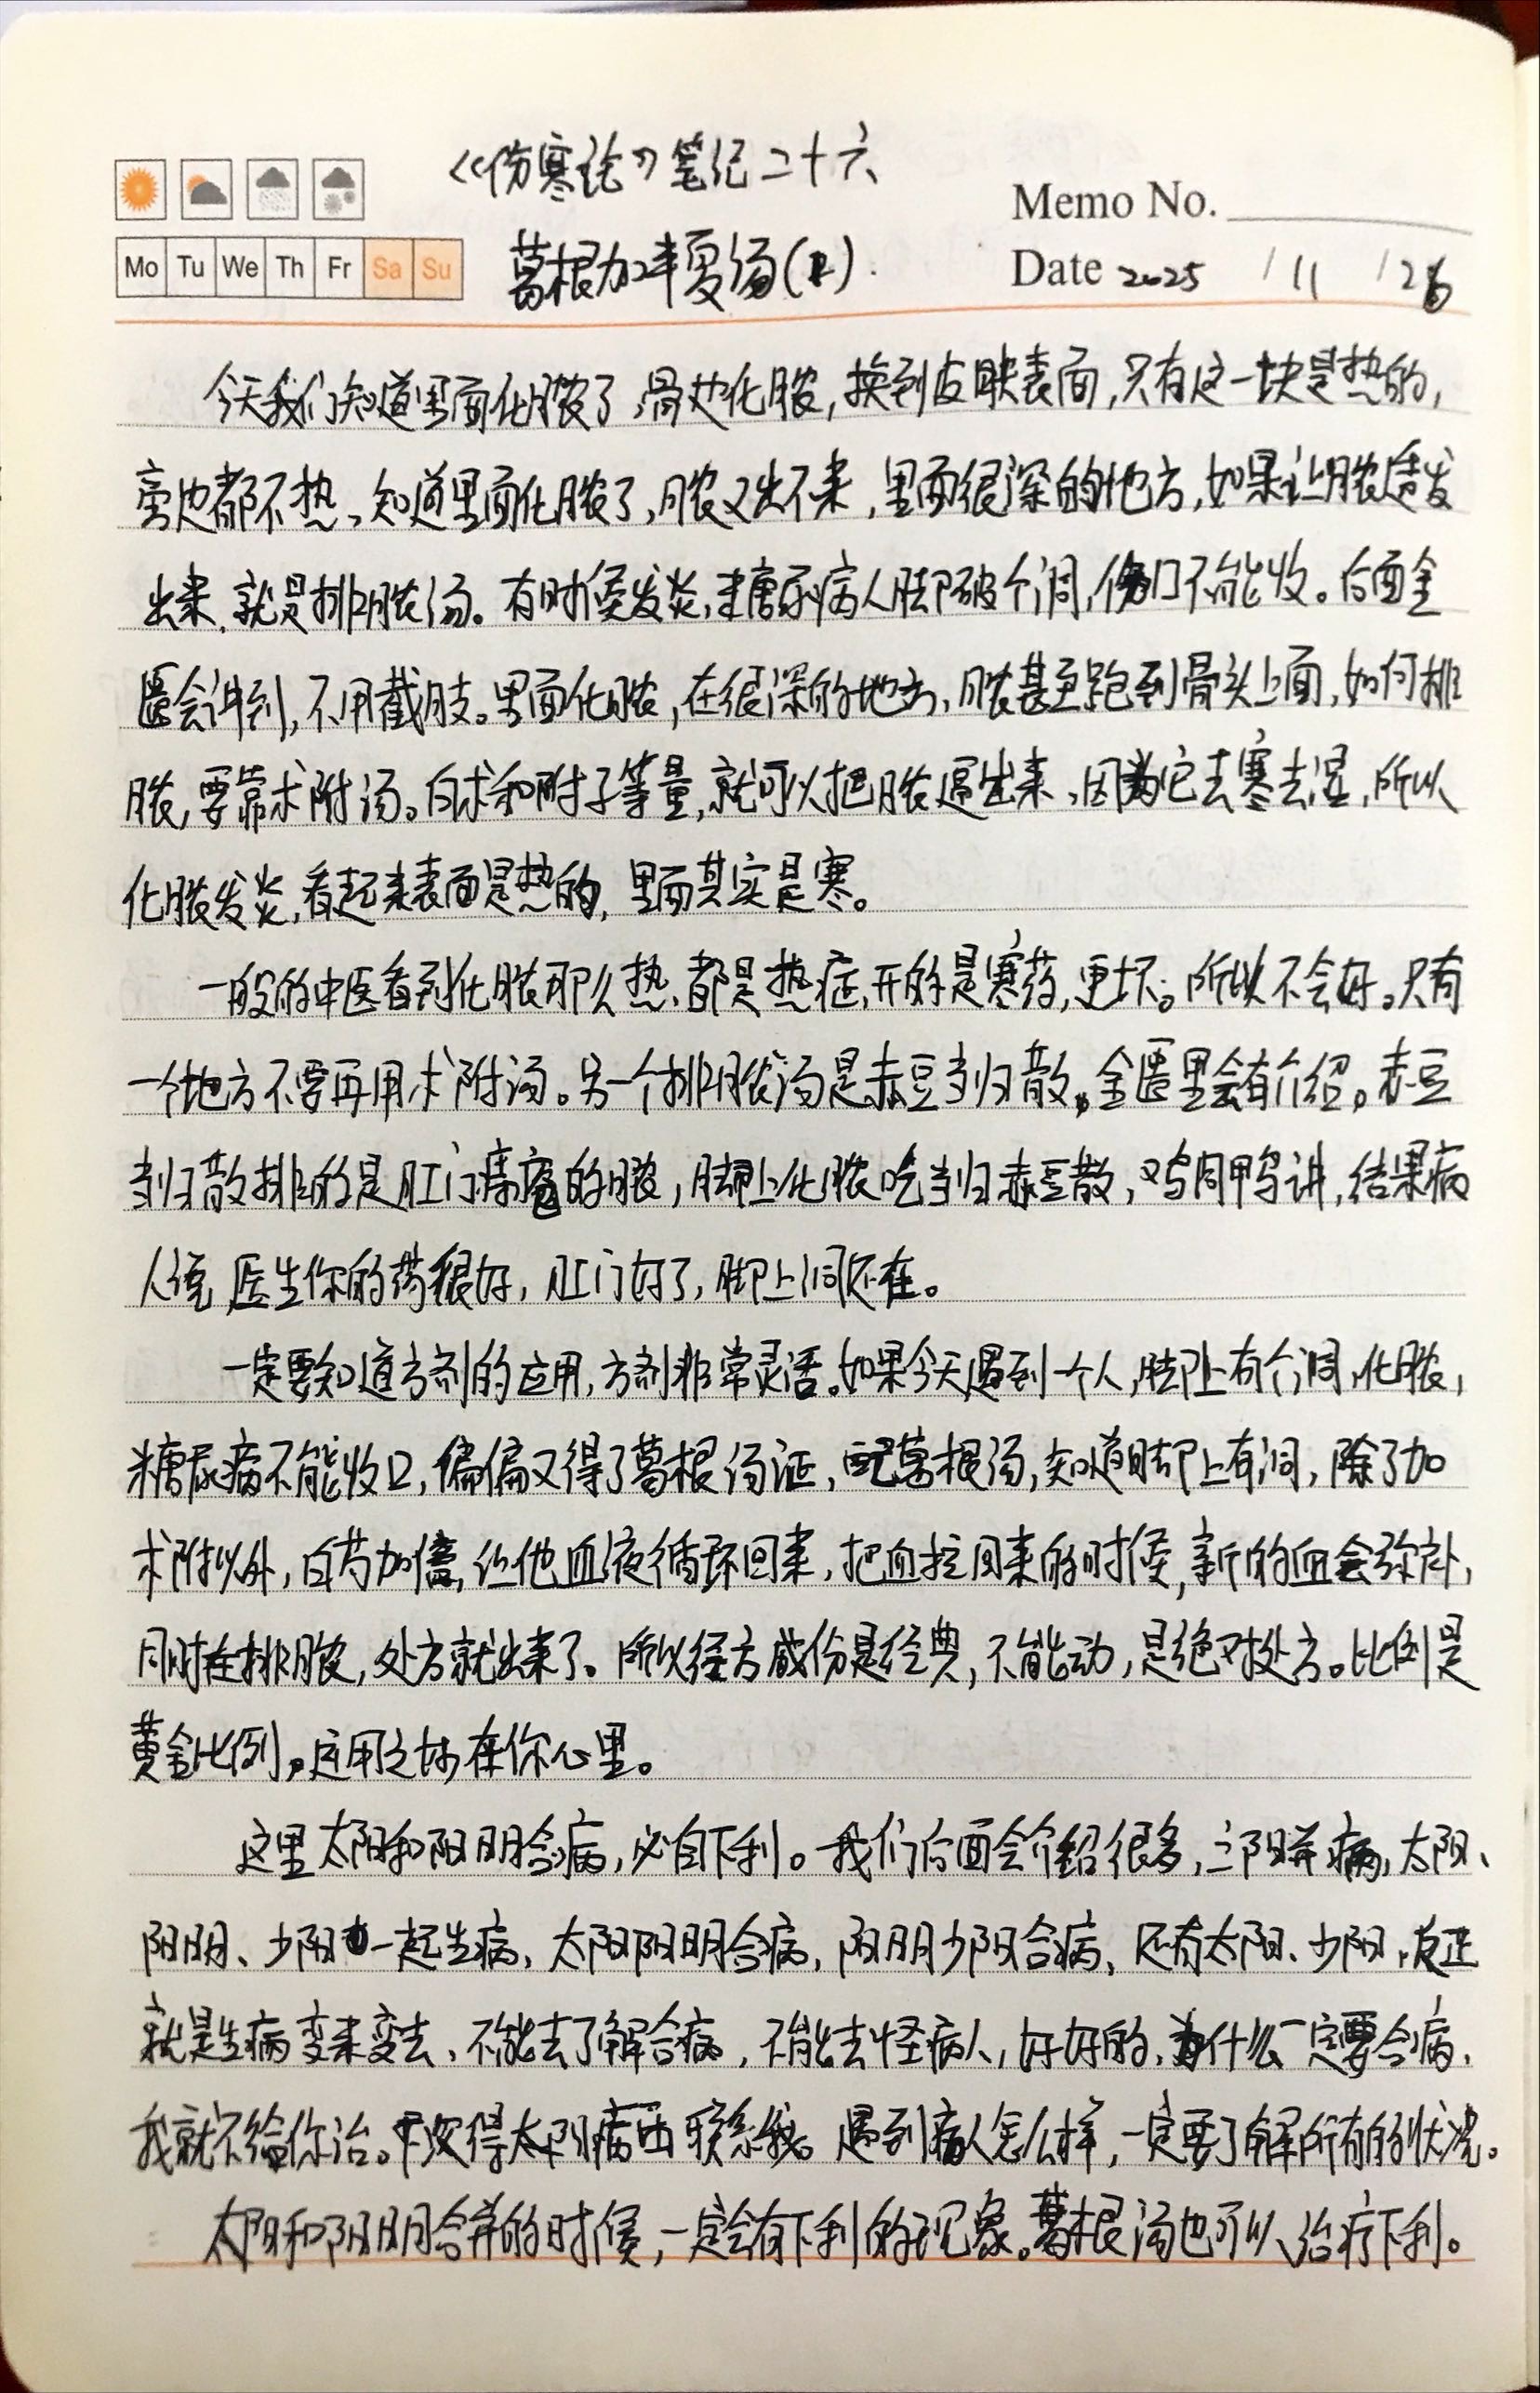 《伤寒论》笔记二十六
Memo No.
Mo Tu We Th Fr Sa Su
葛根加半夏汤
Date 2025 / 11 / 26
今天我们知道里面化脓了,骨边化脓,换到皮肤表面,只有这一块是热的,
旁边都不热、知道里面化脓了,脓又出不来,里面很深的地方,如果让脓透发
出来,就是排脓汤。有时候发炎,糖尿病人脚破个洞,伤口不能收。后面金
匮会讲到,不用截肢。里面化脓,在很深的地方,脓甚至跑到骨头上面,如何排
脓,要靠术附汤。白术和附子等量,就可以把脓逼出来,因为它去寒去湿,所以
化脓发炎,看起来表面是热的,里面其实是寒。
一般的中医看到化脓那么热,都是热症,开的是寒药,更坏。所以不会好。只有
一个地方不要再用术附汤。另一个排脓汤是赤豆当归散。金匮里会有介绍。赤豆
当归散排的是肛门痔疮的脓,脚上化脓吃当归赤豆散,鸡同鸭讲,结果病
人说医生你的药很好,肛门好了,脚上洞还在。
一定要知道方剂的应用,方剂非常灵活。如果今天遇到一个人,脚上有个洞,化脓,
糖尿病不能收口,偏偏又得了葛根汤证,配葛根汤,知道脚上有洞,除了加
术附以外,白芍加倍,让他血液循环回来,把血拉回来的时候,新的血会弥补,
同时在排脓,处方就出来了。所以经方成份是经典,不能动,是绝对处方。比例是
黄金比例。应用之妙在你心里。
这里太阳和阳明合病,必自下利。我们后面会介绍很多,三阳并病,太阳、
阳明、少阳一起生病,太阳阳明合病,阳明少阳合病,还有太阳、少阳,反正
就是生病变来变去、不能去了解合病,不能去怪病人,好好的,为什么一定要合病,
我就不给你治。下次得太阳病再联系我。遇到病人怎么样,一定要了解所有的状况。
太阳和阳明合并的时候,一定会有下利的现象。葛根汤也可以治疗下利。